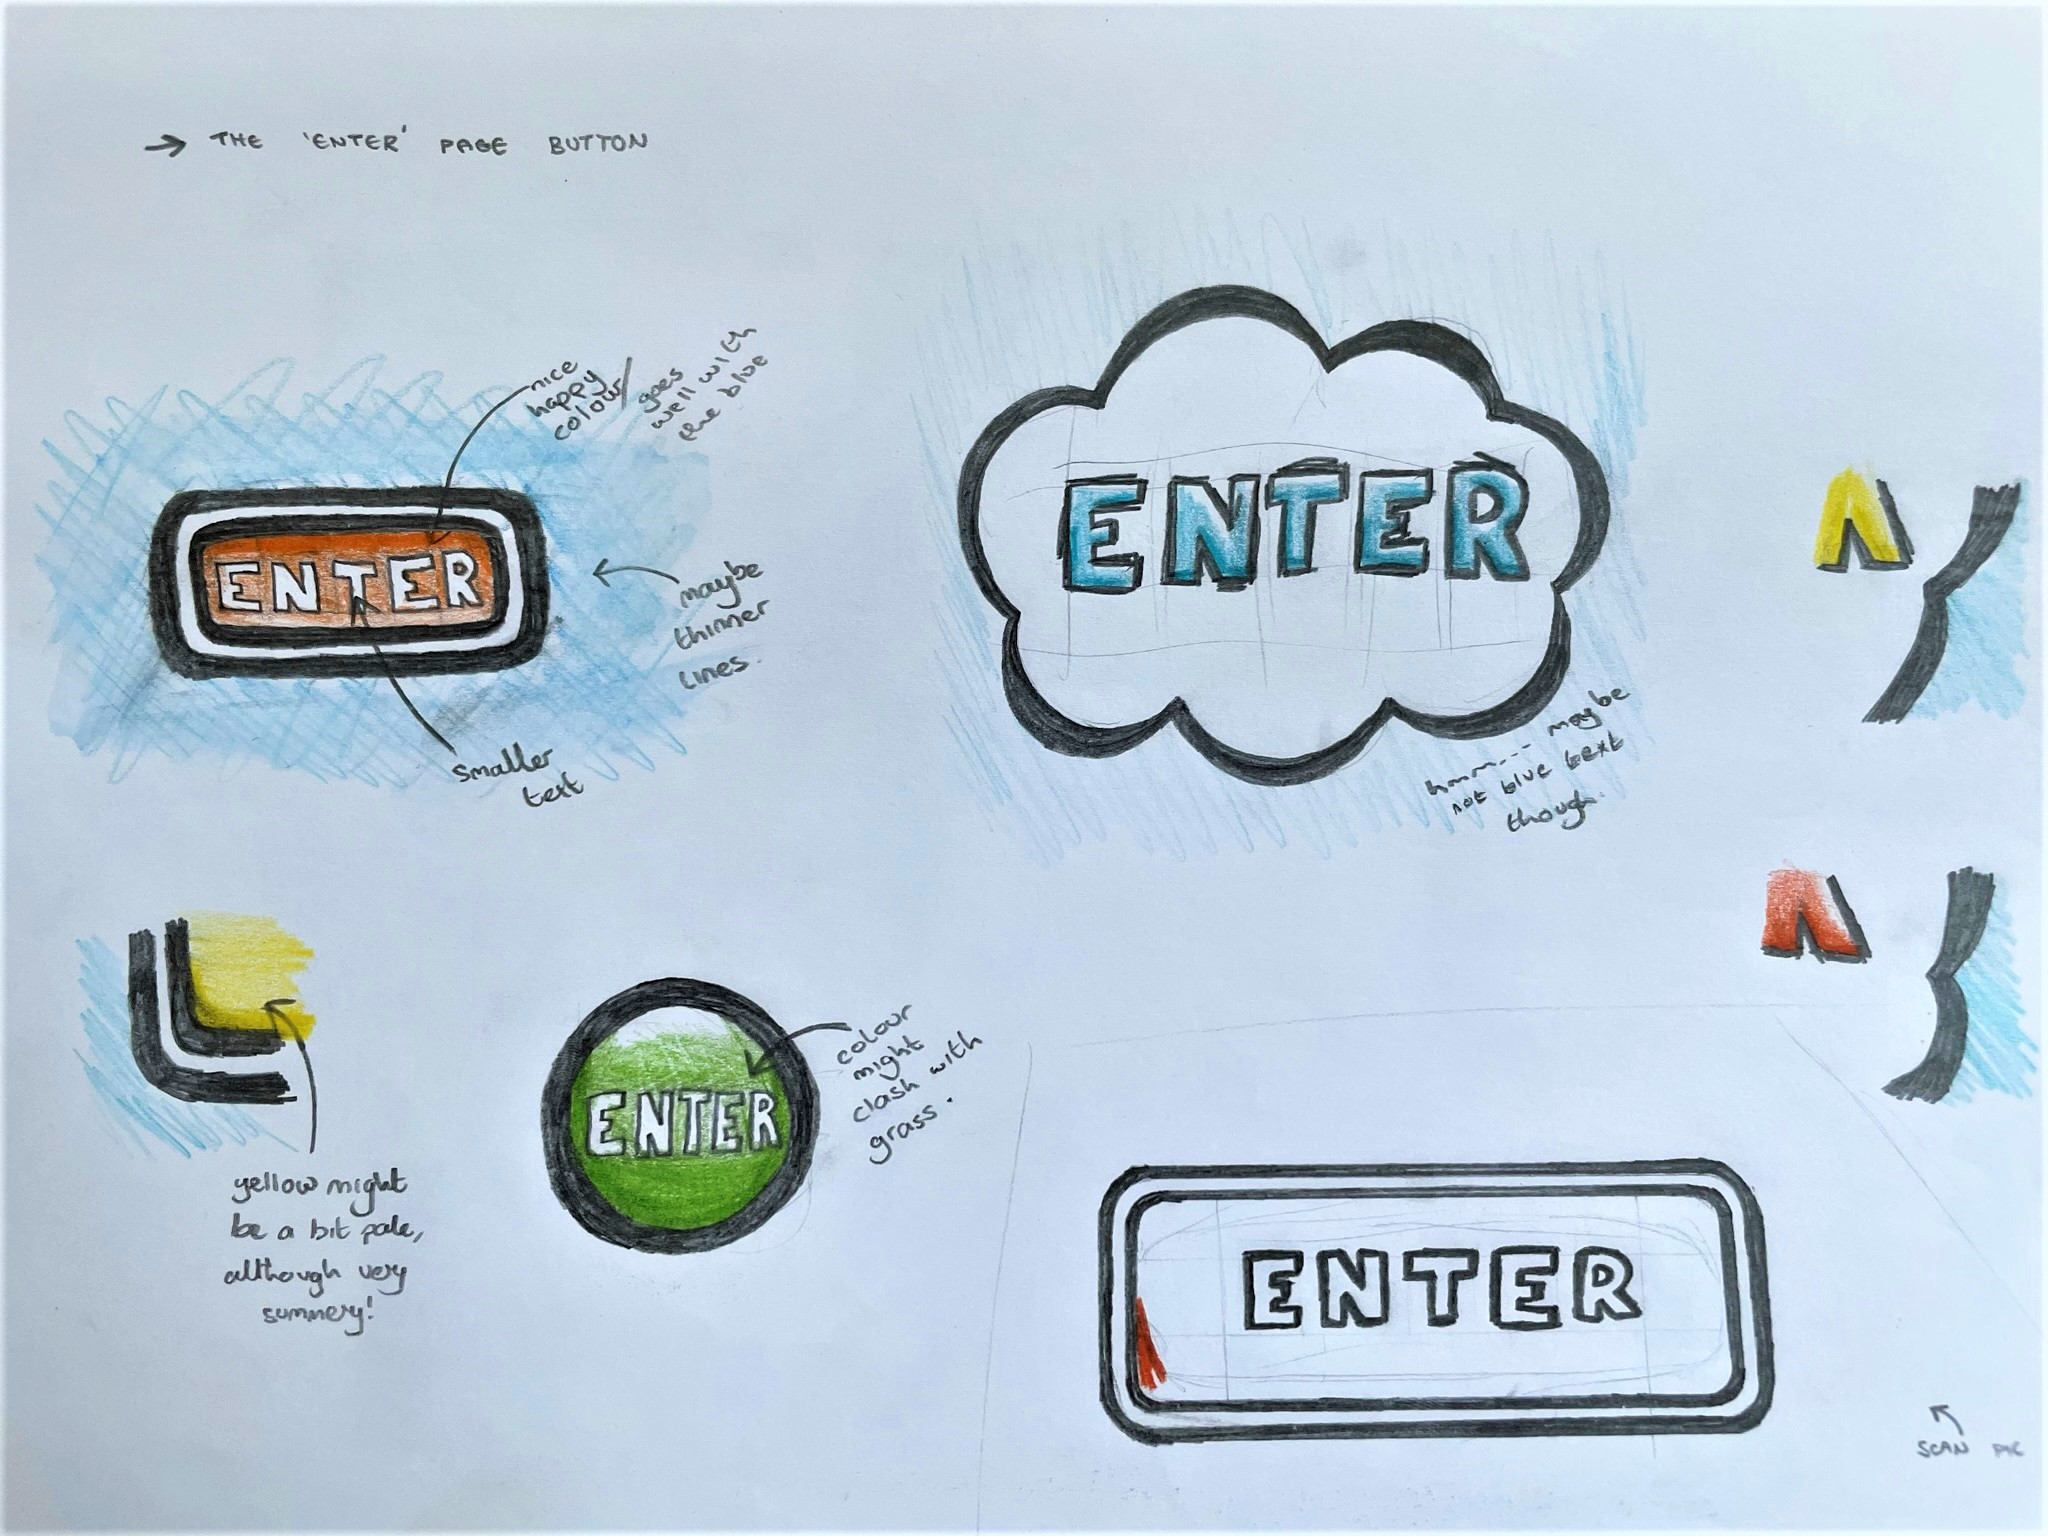 → THE 'ENTER' PAGE BUTTON
nice
happy
colour/
goes
well with
the blue
ENTER
maybe
thinner
lines.
smaller
text
ENTER
hmm... maybe
not blue text
though.
yellow might
be a bit pale,
although very
summery!
ENTER
colour
might
clash with
grass.
ENTER
SCAN PIC